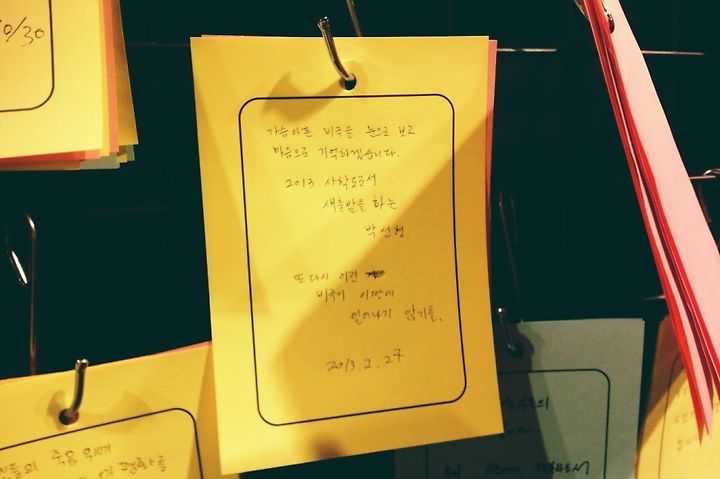 0/30
가슴아픈 비극을 눈으로 보고
마음으로 기억하겠습니다.
2013 사학도로서
새출발을 하는
박선형.
또다시 이런
비극이 이땅에
일어나지 않기를.
2013.2.27
들의 죽음 위에
이 평화를